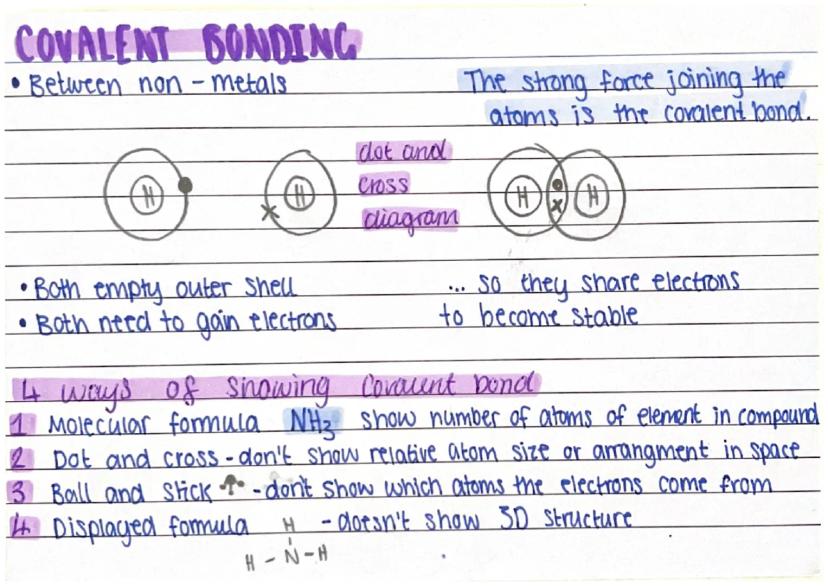 COVALENT BONDING
• Between non-metals
The strong force joining the
atoms is the covalent bond.
H
H
dot and
cross
diagram
H H
• Both empty outer shell
• Both need to gain electrons
... so they share electrons
to become stable
4 ways of showing Covalent bond
1 Molecular formula NH3 show number of atoms of element in compound
2 Dot and cross - don't show relative atom size or arrangment in space
3 Ball and Stick - don't show which atoms the electrons come from
4 Displayed formula - doesn't show 3D structure
H
H - N - H